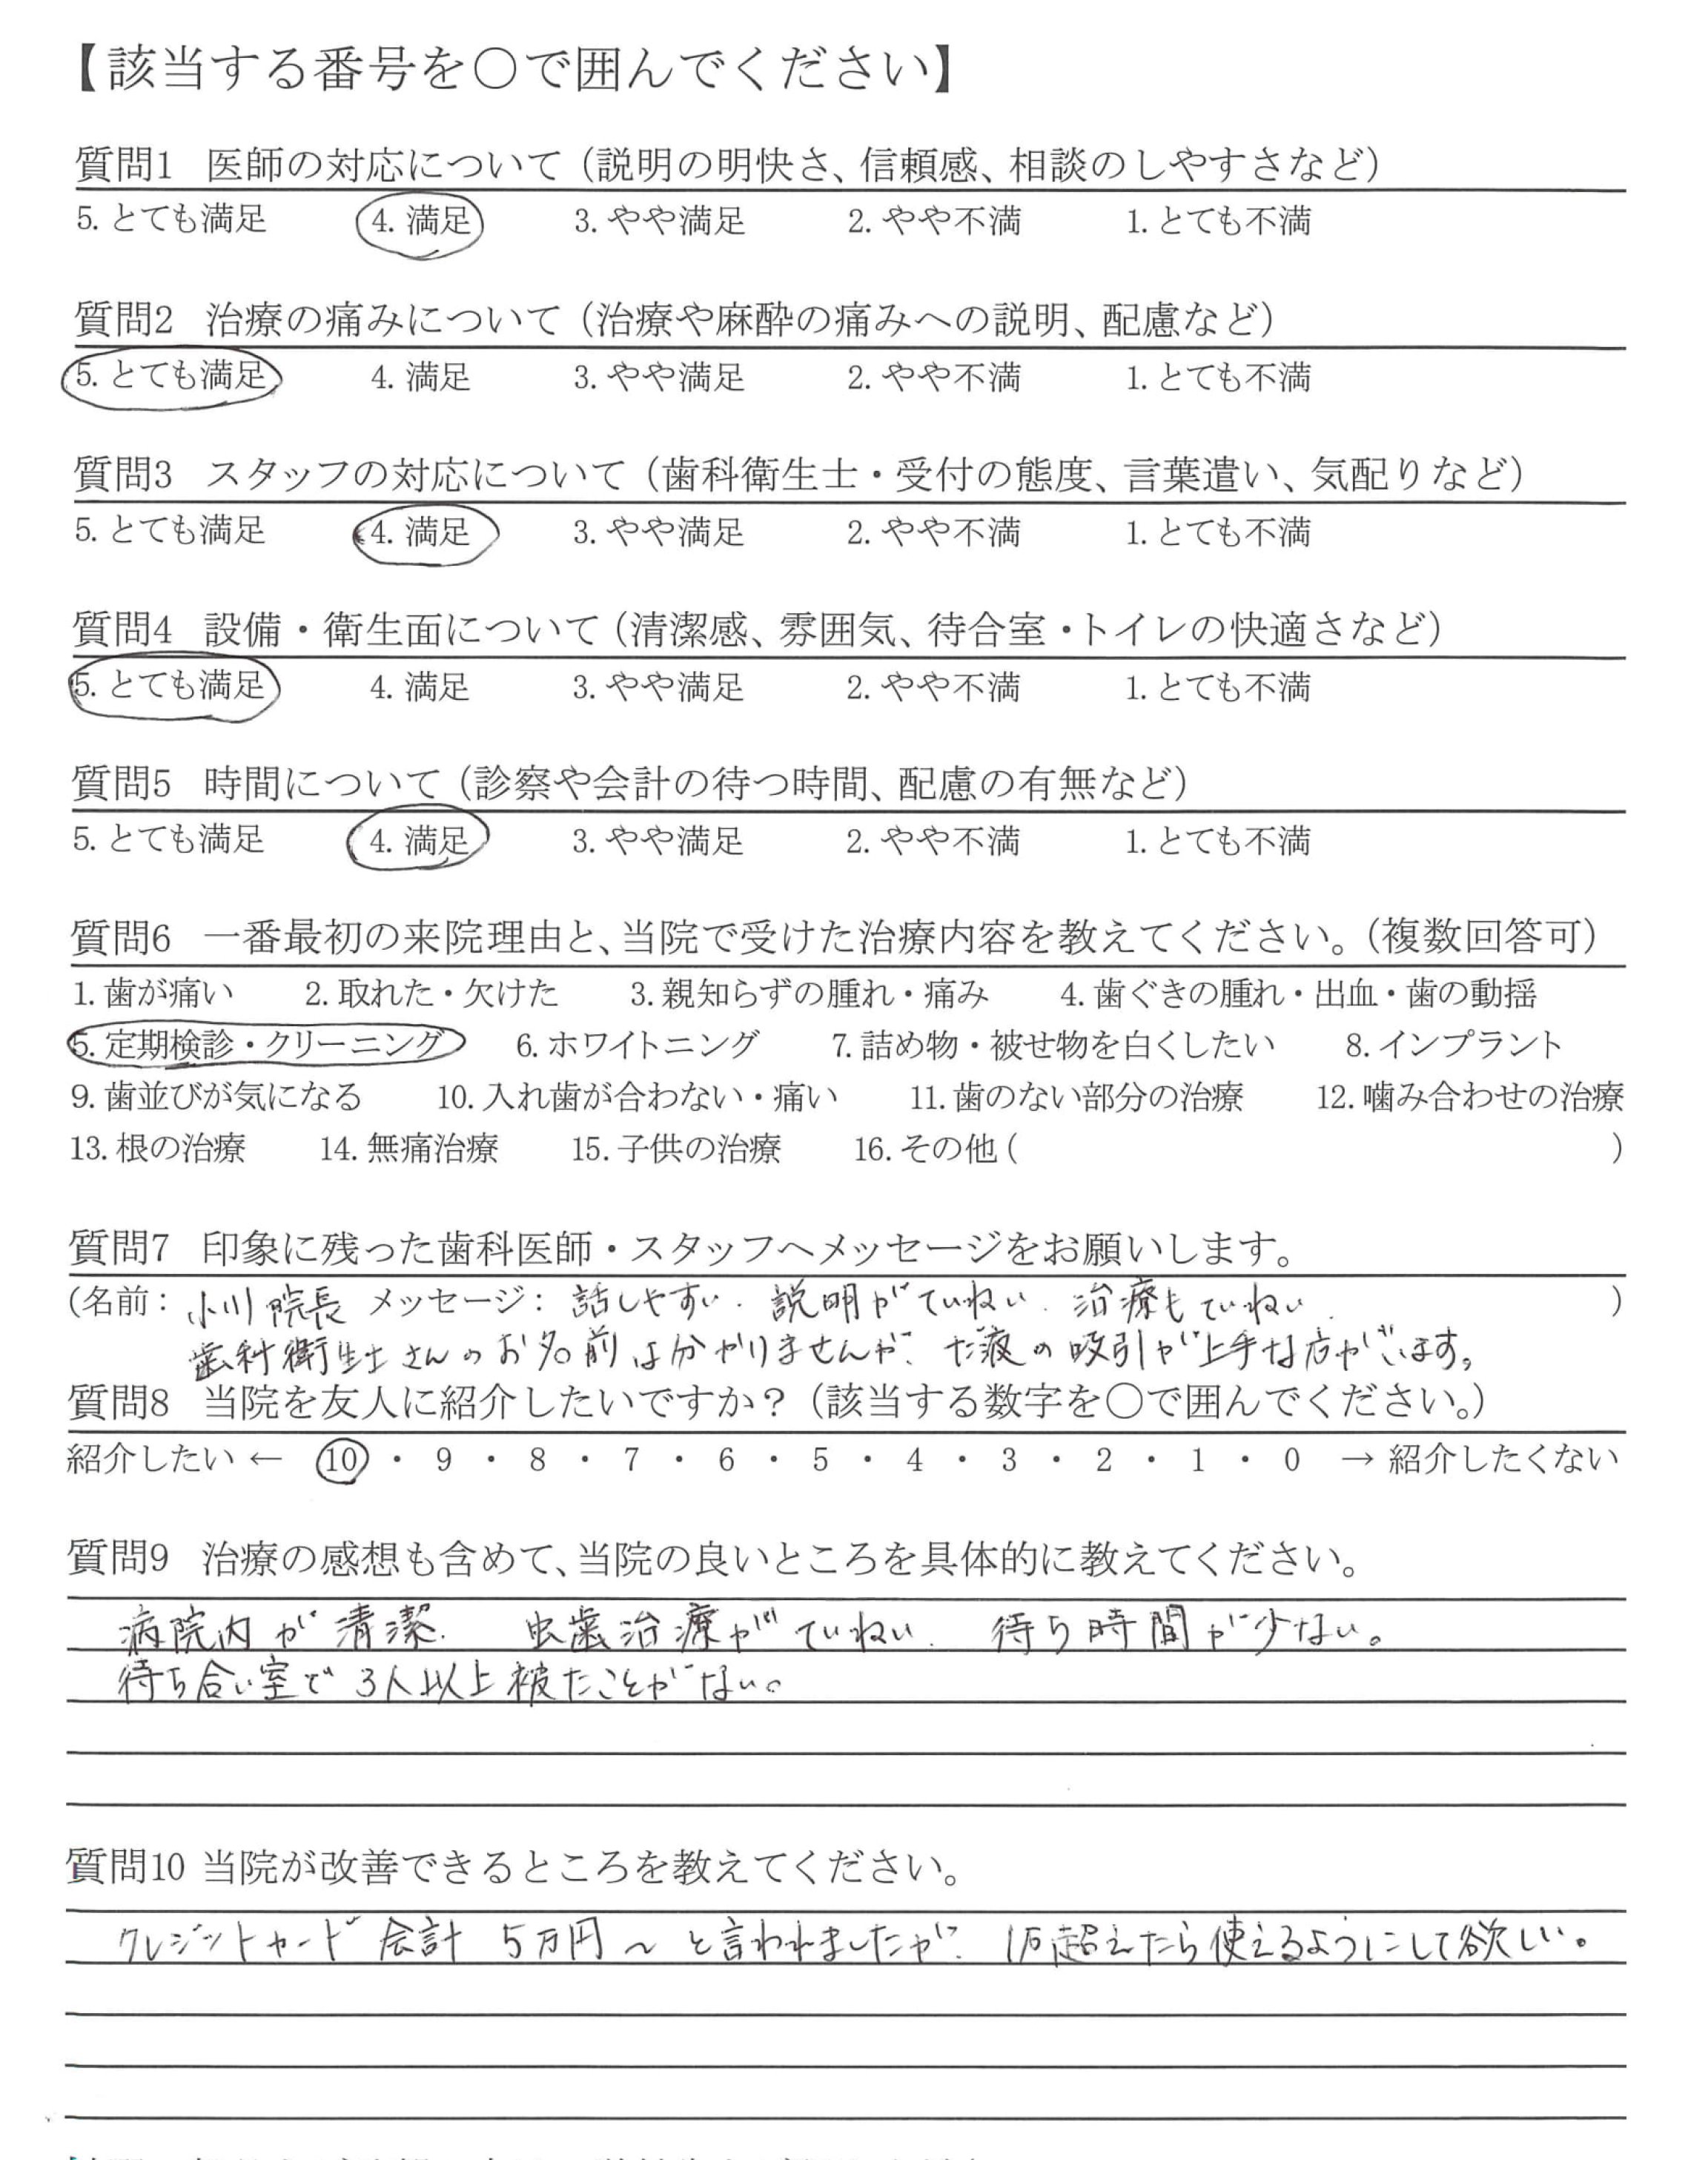 【該当する番号を○で囲んでください】
質問1 医師の対応について（説明の明快さ、信頼感、相談のしやすさなど）
5. とても満足 4. 満足 3. やや満足 2. やや不満 1. とても不満
質問2 治療の痛みについて（治療や麻酔の痛みへの説明、配慮など）
5. とても満足 4. 満足 3. やや満足 2. やや不満 1. とても不満
質問3 スタッフの対応について（歯科衛生士・受付の態度、言葉遣い、気配りなど）
5. とても満足 4. 満足 3. やや満足 2. やや不満 1. とても不満
質問4 設備・衛生面について（清潔感、雰囲気、待合室・トイレの快適さなど）
5. とても満足 4. 満足 3. やや満足 2. やや不満 1. とても不満
質問5 時間について（診察や会計の待つ時間、配慮の有無など）
5. とても満足 4. 満足 3. やや満足 2. やや不満 1. とても不満
質問6 一番最初の来院理由と、当院で受けた治療内容を教えてください。（複数回答可）
1. 歯が痛い 2. 取れた・欠けた 3. 親知らずの腫れ・痛み 4. 歯ぐきの腫れ・出血・歯の動揺
5. 定期検診・クリーニング 6. ホワイトニング 7. 詰め物・被せ物を白くしたい 8. インプラント
9. 歯並びが気になる 10. 入れ歯が合わない・痛い 11. 歯のない部分の治療 12. 噛み合わせの治療
13. 根の治療 14. 無痛治療 15. 子供の治療 16. その他 ( )
質問7 印象に残った歯科医師・スタッフへメッセージをお願いします。
(名前： 小川院長 メッセージ： 話しやすい. 説明がていねい. 治療もていねい. )
歯科衛生士さんのお名前は分かりませんが、だ液の吸引が上手な方がいます。
質問8 当院を友人に紹介したいですか？（該当する数字を○で囲んでください。）
紹介したい ← 10 ・ 9 ・ 8 ・ 7 ・ 6 ・ 5 ・ 4 ・ 3 ・ 2 ・ 1 ・ 0 → 紹介したくない
質問9 治療の感想も含めて、当院の良いところを具体的に教えてください。
病院内が清潔. 虫歯治療がていねい. 待ち時間が少ない。
待ち合い室で3人以上被たことがない。
質問10 当院が改善できるところを教えてください。
クレジットカード会計 5万円〜と言われましたが、1万超えたら使えるようにして欲しい。